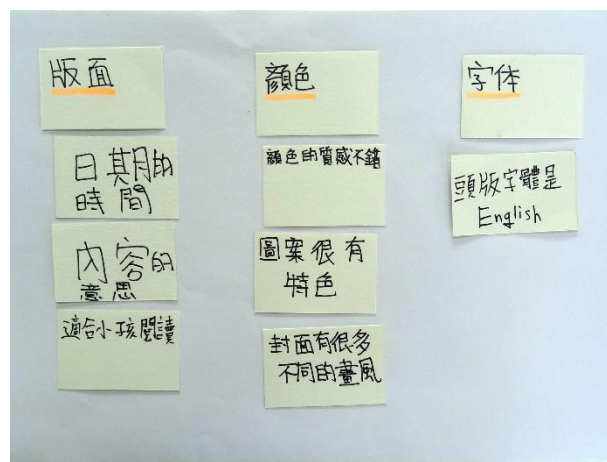 版面
日期的
時間
內容的
意思
適合小孩閱讀
顏色
顏色的質感不錯
圖案很有
特色
封面有很多
不同的畫風
字体
頭版字體是
English